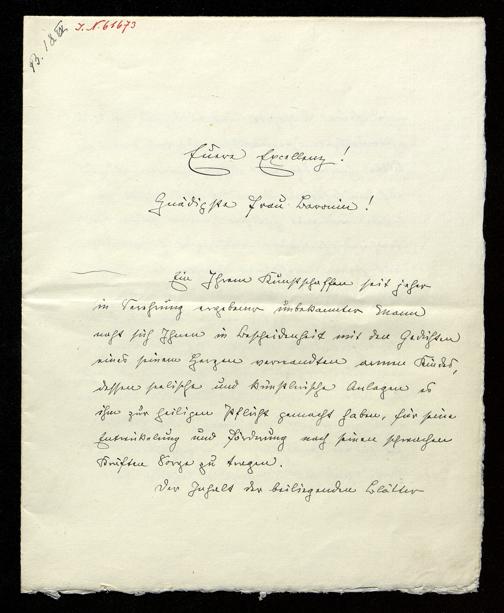 B. 18
I. N. 61673
Euere Excellenz!
Gnädigste Frau Baronin!
Ein Ihrem Kunstschaffen seit jeher
in Verehrung ergebener unbekannter Mann
naht sich Ihnen in Bescheidenheit mit den Gedichten
eines seinem Herzen verwandten armen Kindes,
dessen seelische und künstlerische Anlagen es
ihm zur heiligen Pflicht gemacht haben, für seine
Entwickelung und Förderung nach seinen schwachen
Kräften Sorge zu tragen.
Der Inhalt der beiliegenden Blätter